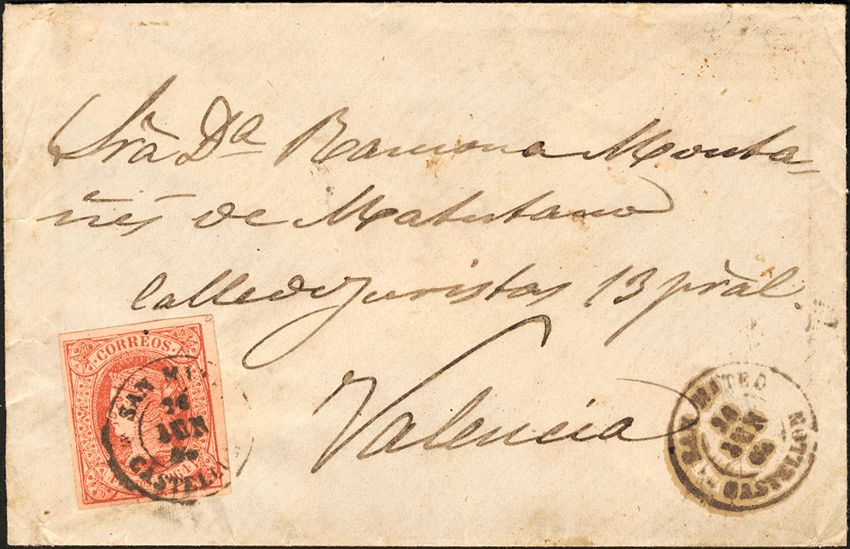 Sra Dª Ramona Monta-
ñés de Matutano
Calle de Juristas 13 pral.
Valencia
CORREOS
SAN M
JUN
CASTELLON
SAN MATEO
JUN
CASTELLON